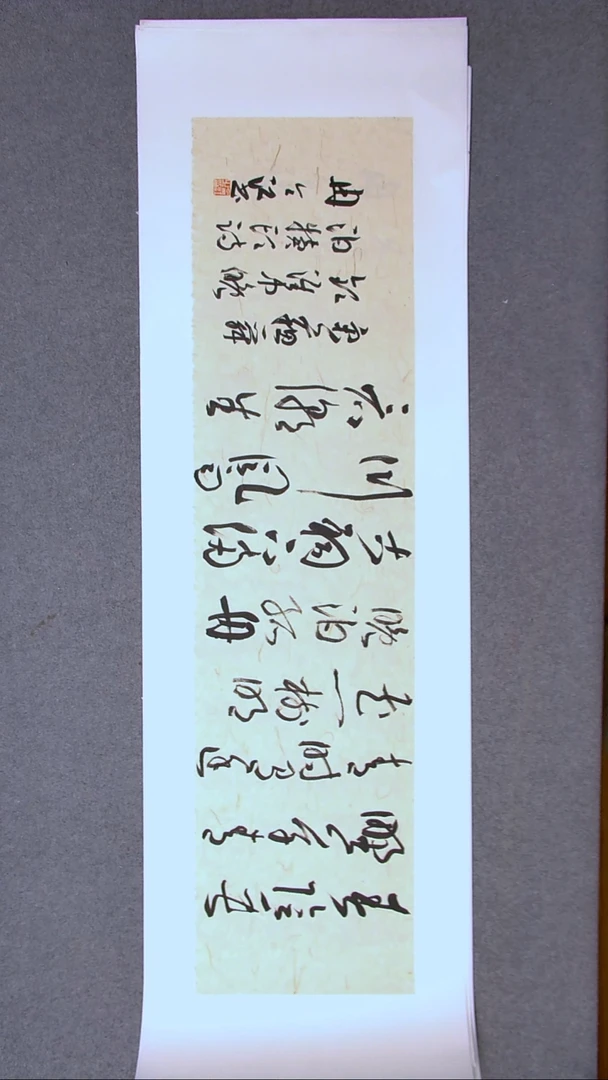 春阴垂
野草青
青时有幽
花一树明
晚泊孤舟
古祠下满
川风雨
看潮生
苏舜
钦淮中晚
泊犊头诗